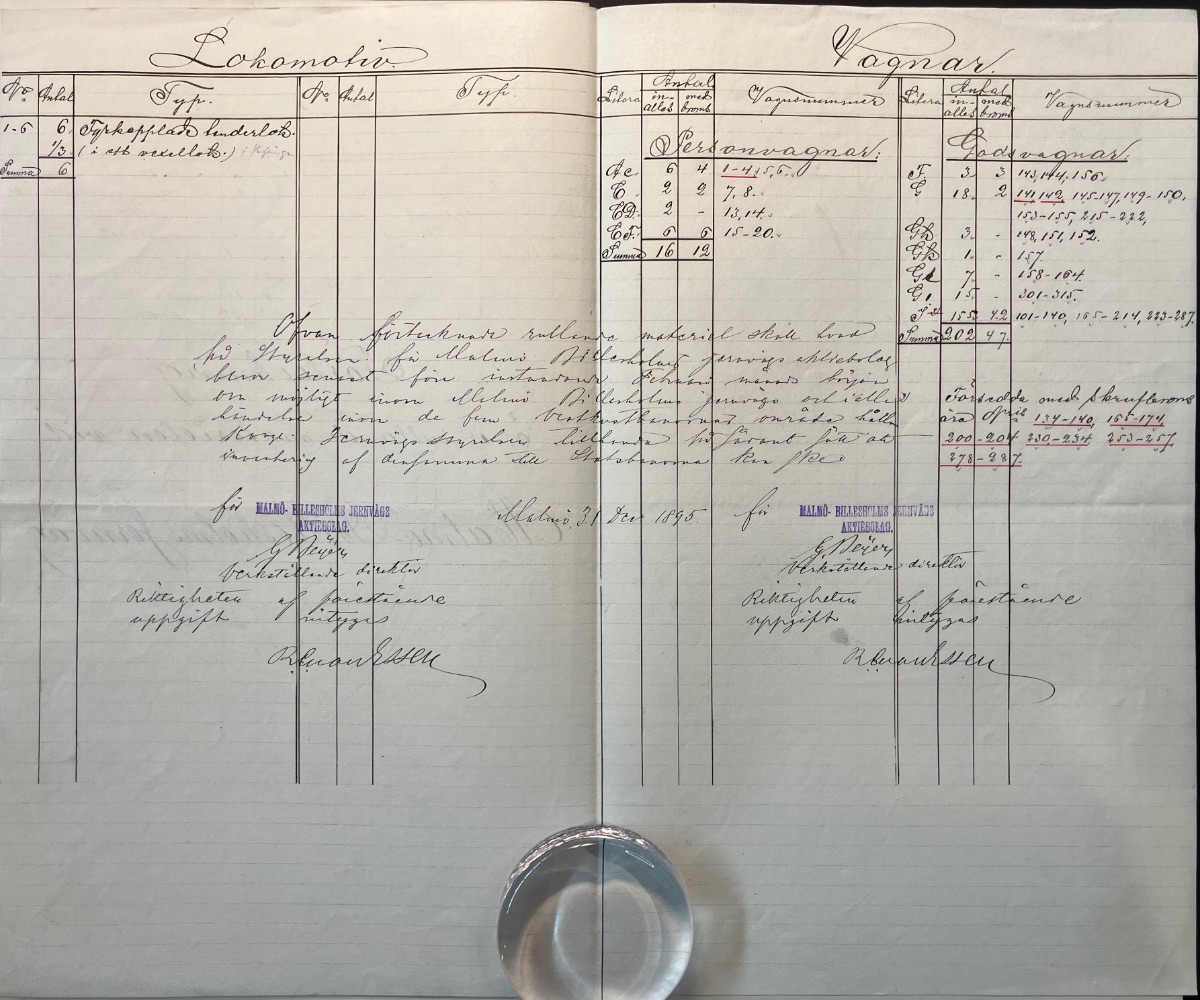 Lokomotiv.
No Antal Typ. No Antal Typ.
1-6 6. Fyrkopplade tenderlok.
1/3. (i ett vexellok.)
Summa 6
Vagnar.
Litera Antal Vagnsnummer
in-alles med broms
Personvagnar:
A c. 6 4 1-4, 5, 6.
C. 2 2 7, 8.
CD. 2 - 13, 14.
C F. 6 6 15-20.
Summa 16 12
Litera Antal Vagnsnummer
in-alles med broms
Godsvagnar:
F. 3. 3 143, 144, 156.
G 18. 2 141, 142, 145-147, 149-150,
153-155, 215-222,
Gh 3. - 148, 151, 152.
1. - 157.
7 - 158-164.
G 15 - 301-315.
155. 42. 101-140, 165-214, 223-287.
Summa 202 47.
Ofvan förtecknade rullande materiel skall hvad
på Styrelsen för Malmö Billesholms jernvägs aktiebolag
beror senast före instundande Februari månads början
om möjligt inom Malmö Billesholms jernvägs och i alla
händelser inom de fem Vestkustbanornas område hållas
Kongl. Jernvägsstyrelsen tillhanda på sådant sätt att
inventering af densamma till Statsbanorna kan ske
Försedda med skrufbroms
äro 137-140, 165-174,
200-204 230-234, 253-257,
278-287.
för MALMÖ-BILLESHOLMS JERNVÄGS
AKTIEBOLAG.
Malmö, 31 Dec 1895.
G Beijer
Verkställande direktör
Riktigheten af förestående
uppgift intygas
R von Essen
för MALMÖ-BILLESHOLMS JERNVÄGS
AKTIEBOLAG.
G Beijer
Verkställande direktör
Riktigheten af förestående
uppgift intygas
R von Essen